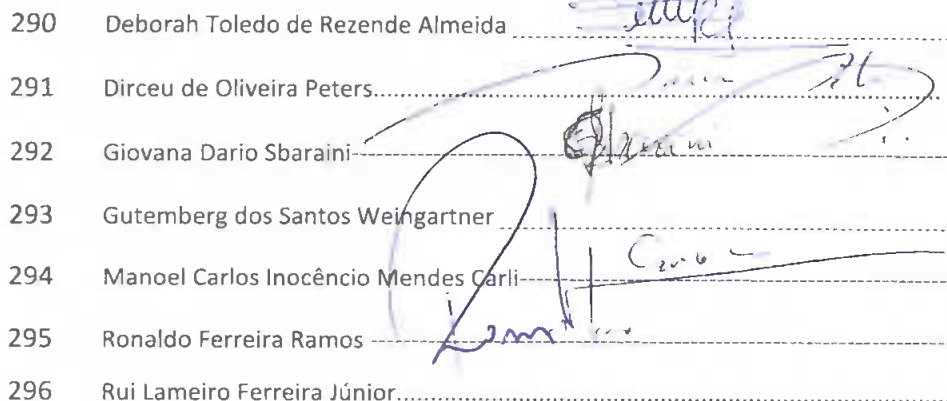 290 Deborah Toledo de Rezende Almeida
291 Dirceu de Oliveira Peters
292 Giovana Dario Sbaraini
293 Gutemberg dos Santos Weingartner
294 Manoel Carlos Inocêncio Mendes Carli
295 Ronaldo Ferreira Ramos
296 Rui Lameiro Ferreira Júnior